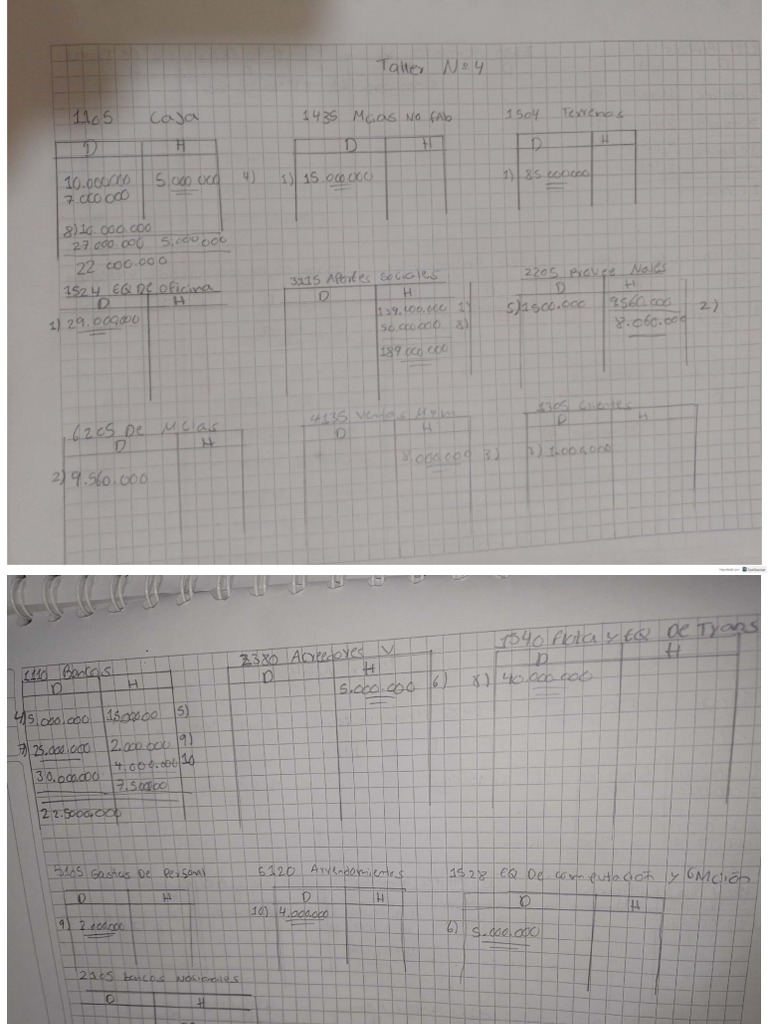 Taller No 4
1105 Caja
D H
10.000.000 5.000.000 4)
7.000.000
8) 10.000.000
27.000.000 5.000.000
22 000.000
1435 Mcias No fAb
D H
1) 15.000.000
1504 Terrenos
D H
1) 85.000000
1524 EQ DE oficina
D H
1) 29.000000
3115 Aportes sociales
D H
139.000.000 1)
50.000000 8)
189.000000
2205 Provee Nales
D H
5) 1500.000 9560.000 2)
8.060.000
6205 De MCias
D H
2) 9.560.000
4135 Ventas
D H
8.000.000 3)
1305 Clientes
D H
3) 1.000,000
1110 Bancos
D H
4) 5.000.000 1500000 5)
7) 25.000.000 2.000.000 9)
4.000.000 10
30.000.000 7.500000
22.5000,000
2380 Acreedores V
D H
5.000.000 6)
1540 flota y EQ De Trans
D H
8) 40.000.000
5105 Gastos De Personal
D H
9) 2.000000
5120 Arrendamientos
D H
10) 4.000000
1528 EQ De computación y CMción
D H
6) 5.000.000
2105 bancos Nacionales
D H